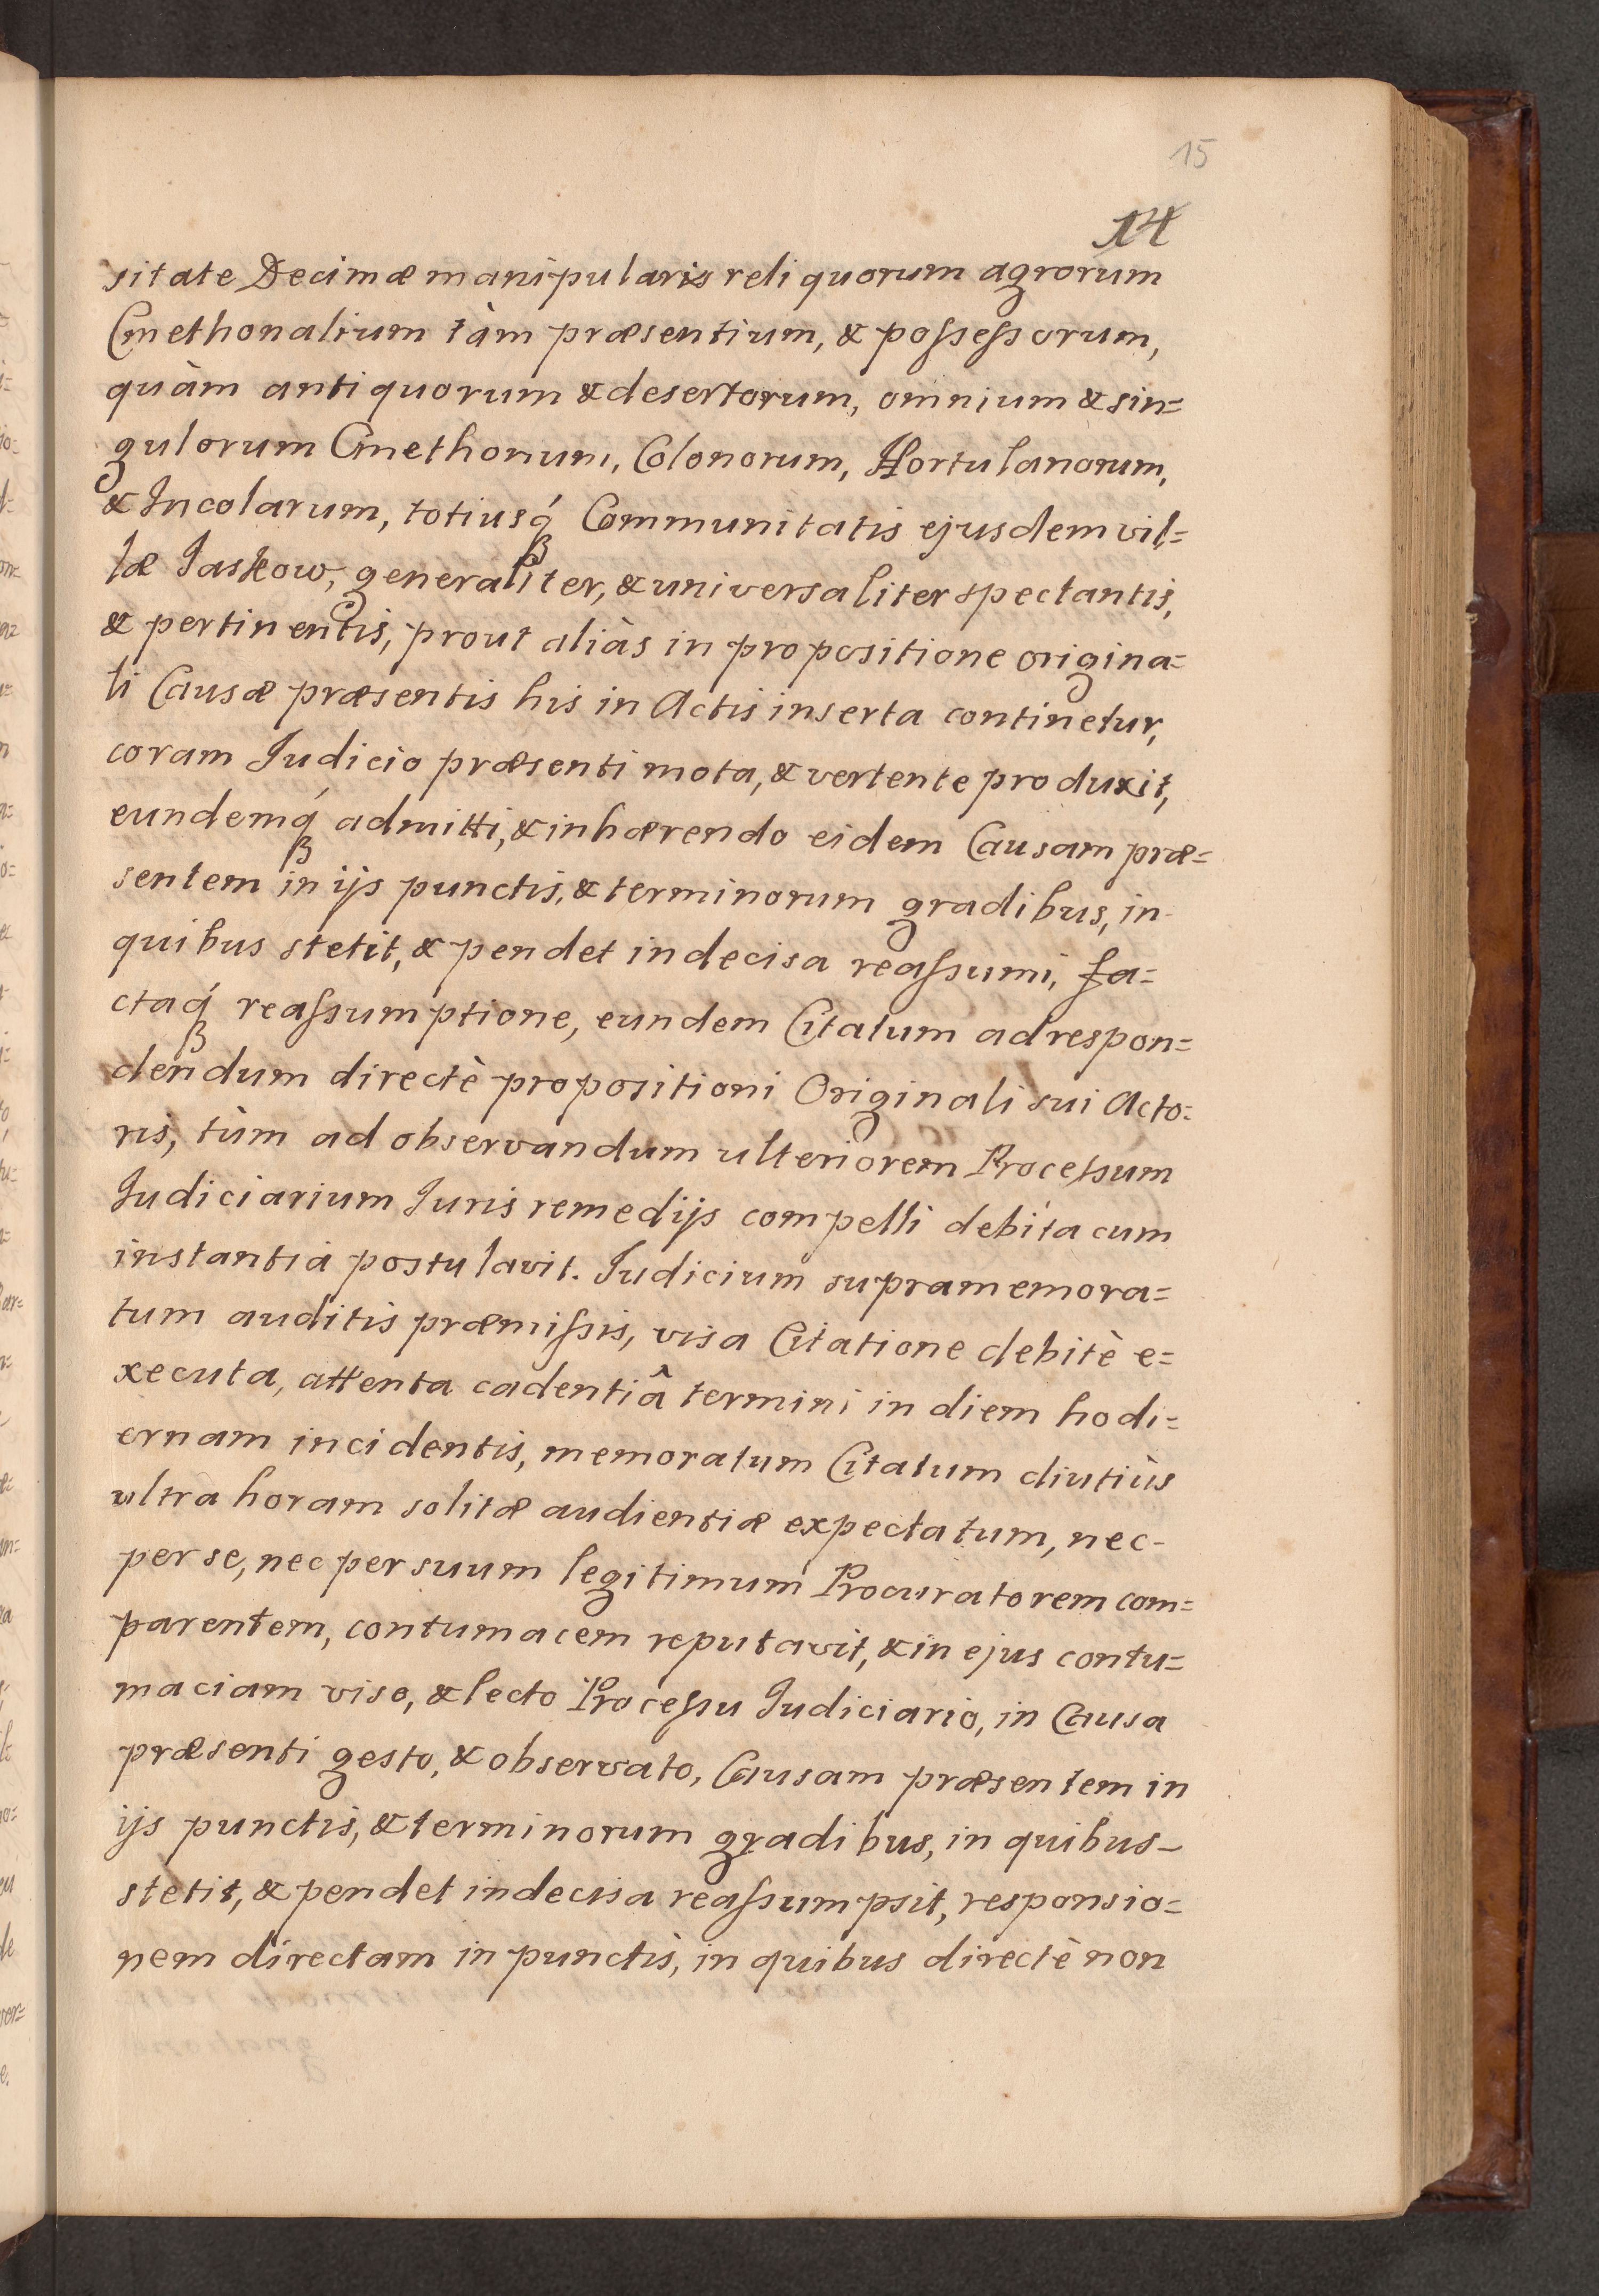 15
14
sitate Decimæ manipularis reliquorum agrorum
Cmethonalium tàm præsentium, & possessorum,
quàm antiquorum & desertorum, omnium & sin=
gulorum Cmethonum, Colonorum, Hortulanorum,
& Incolarum, totiusq́ Communitatis ejusdem vil=
læ Jaskow, generaliter, & universaliter spectantis,
& pertinentis, prout aliàs in propositione origina=
li Causæ præsentis his in Actis inserta continetur,
coram Judicio præsenti mota, & vertente produxit,
eundemq́ admitti, & inhærendo eidem Causam præ=
sentem in ijs punctis, & terminorum gradibus, in-
quibus stetit, & pendet indecisa reassumi, fa=
ctaq́ reassumptione, eundem Citatum ad respon=
dendum directè propositioni Originali sui Acto=
ris, tùm ad observandum ulteriorem Processum
Judiciarium Juris remedijs compelli debita cum
instantiâ postulavit. Judicium supramemora=
tum auditis præmissis, visa Citatione debitè e=
xecuta, attenta cadentiâ termini in diem hodi=
ernam incidentis, memoratum Citatum diutiùs
ultra horam solitæ audientiæ expectatum, nec-
per se, nec per suum legitimum Procuratorem com=
parentem, contumacem reputavit, & in ejus contu=
maciam viso, & lecto Processu Judiciario, in Causa
præsenti gesto, & observato, Causam præsentem in
ijs punctis, & terminorum gradibus, in quibus-
stetit, & pendet indecisa reassumpsit, responsio=
nem directam in punctis, in quibus directè non